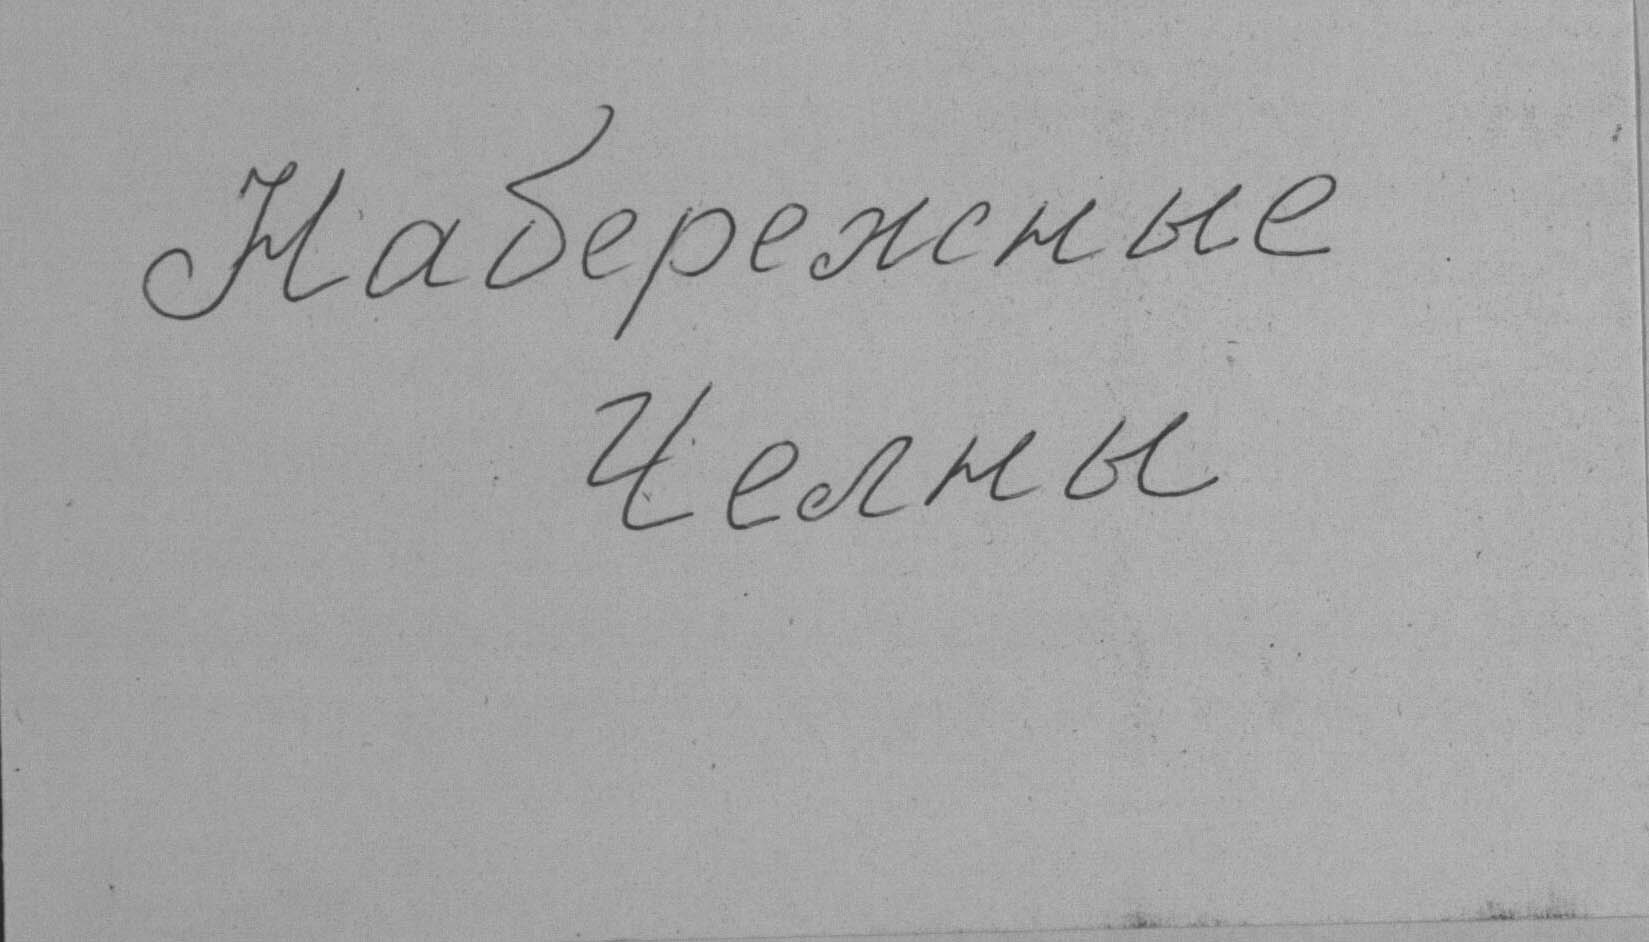 Набережные
Челны